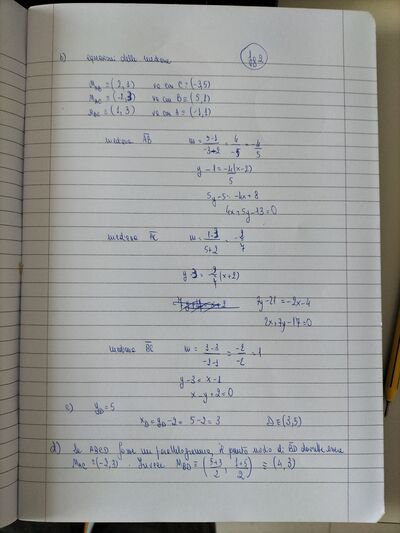 b) equazioni delle mediane
M_AB = (2,1) va con C = (-3,5)
M_AC = (-2,3) va con B = (5,1)
M_BC = (1,3) va con A = (-1,1)
mediana AB m = 5-1/-3-2 = 4/-5 = -4/5
y - 1 = -4/5 (x-2)
5y - 5 = -4x + 8
4x + 5y - 13 = 0
mediana AC m = 1-3/5+2 = -2/7
y - 3 = -2/7 (x+2)
7y - 21 = -2x - 4
2x + 7y - 17 = 0
mediana BC m = 1-3/-1-1 = -2/-2 = 1
y - 3 = x - 1
x - y + 2 = 0
c) y_D = 5
x_D = y_D - 2 = 5 - 2 = 3 D = (3,5)
d) Se ABCD fosse un parallelogramma, il punto medio di BD dovrebbe essere
M_AC = (-2,3). Invece M_BD = (5+3/2, 1+5/2) = (4,3)